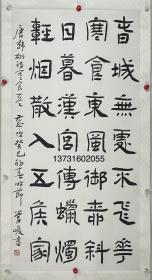 春城無處不飛花
寒食東風御柳斜
日暮漢宮傳蠟燭
輕烟散入五侯家
唐韓翃詩寒食 歲次癸巳 書
13731602055